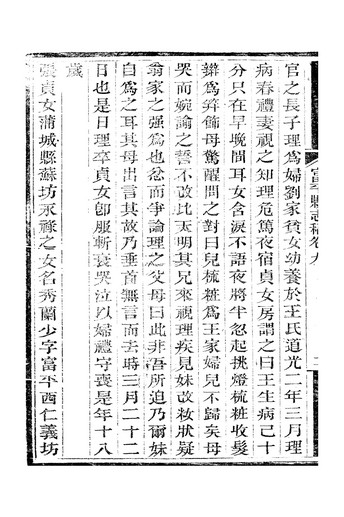 官之長子理爲婦劉家貧女幼養於王氏道光二年三月理
病春禮妻視之知理危篤夜宿貞女房謂之曰王生病已十
分只在早晩間耳女含淚不語夜將半忽起挑燈梳粧收髮
辮爲笄飾母驚醒問之對曰兒梳粧爲王家婦兒不歸矣母
哭而婉諭之誓不改此天明其兄來視理疾見妹改妝狀疑
翁家之强爲也忿而爭論理之父母曰此非吾所迫乃爾妹
自爲之耳其母出言其故乃垂首無言而去時三月二十二
日也是日理卒貞女卽服斬衰哭泣以婦禮守喪是年十八
歲
張貞女蒲城縣蘇坊永祿之女名秀蘭少字富平西仁義坊
富平縣志稿卷九